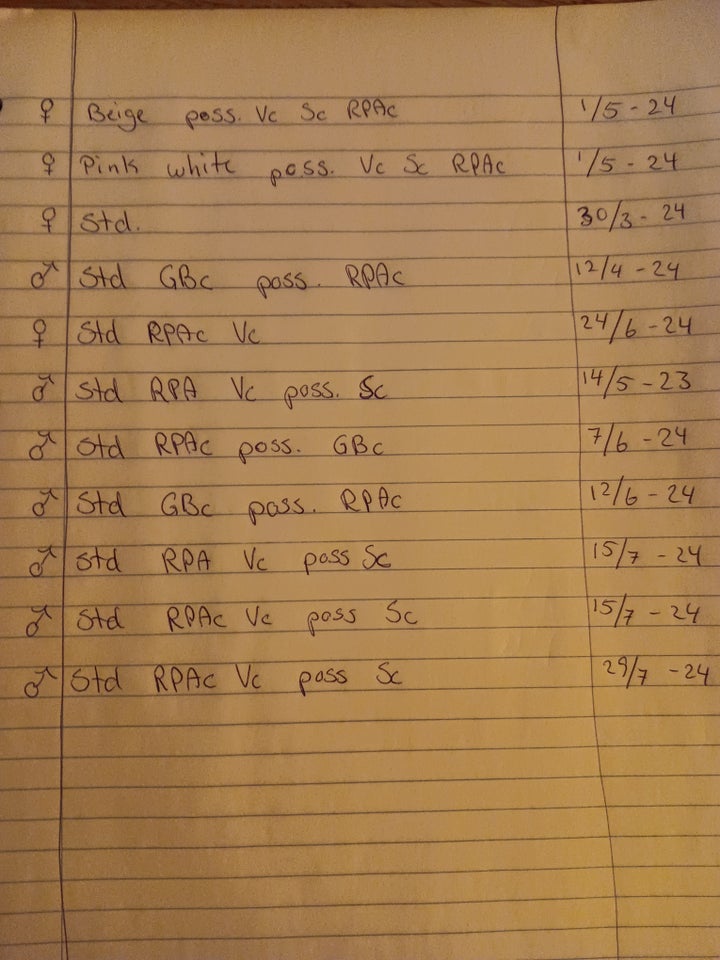 ♀ Beige poss. Vc Sc RPAc 1/5 - 24
♀ Pink white poss. Vc Sc RPAc 1/5 - 24
♀ Std. 30/3 - 24
♂ Std GBc poss. RPAc 12/4 - 24
♀ Std RPAc Vc 24/6 - 24
♂ Std RPA Vc poss. Sc 14/5 - 23
♂ Std RPAc poss. GBc 7/6 - 24
♂ Std GBc poss. RPAc 12/6 - 24
♂ Std RPA Vc poss Sc 15/7 - 24
♂ Std RPAc Vc poss Sc 15/7 - 24
♂ Std RPAc Vc poss Sc 29/7 - 24